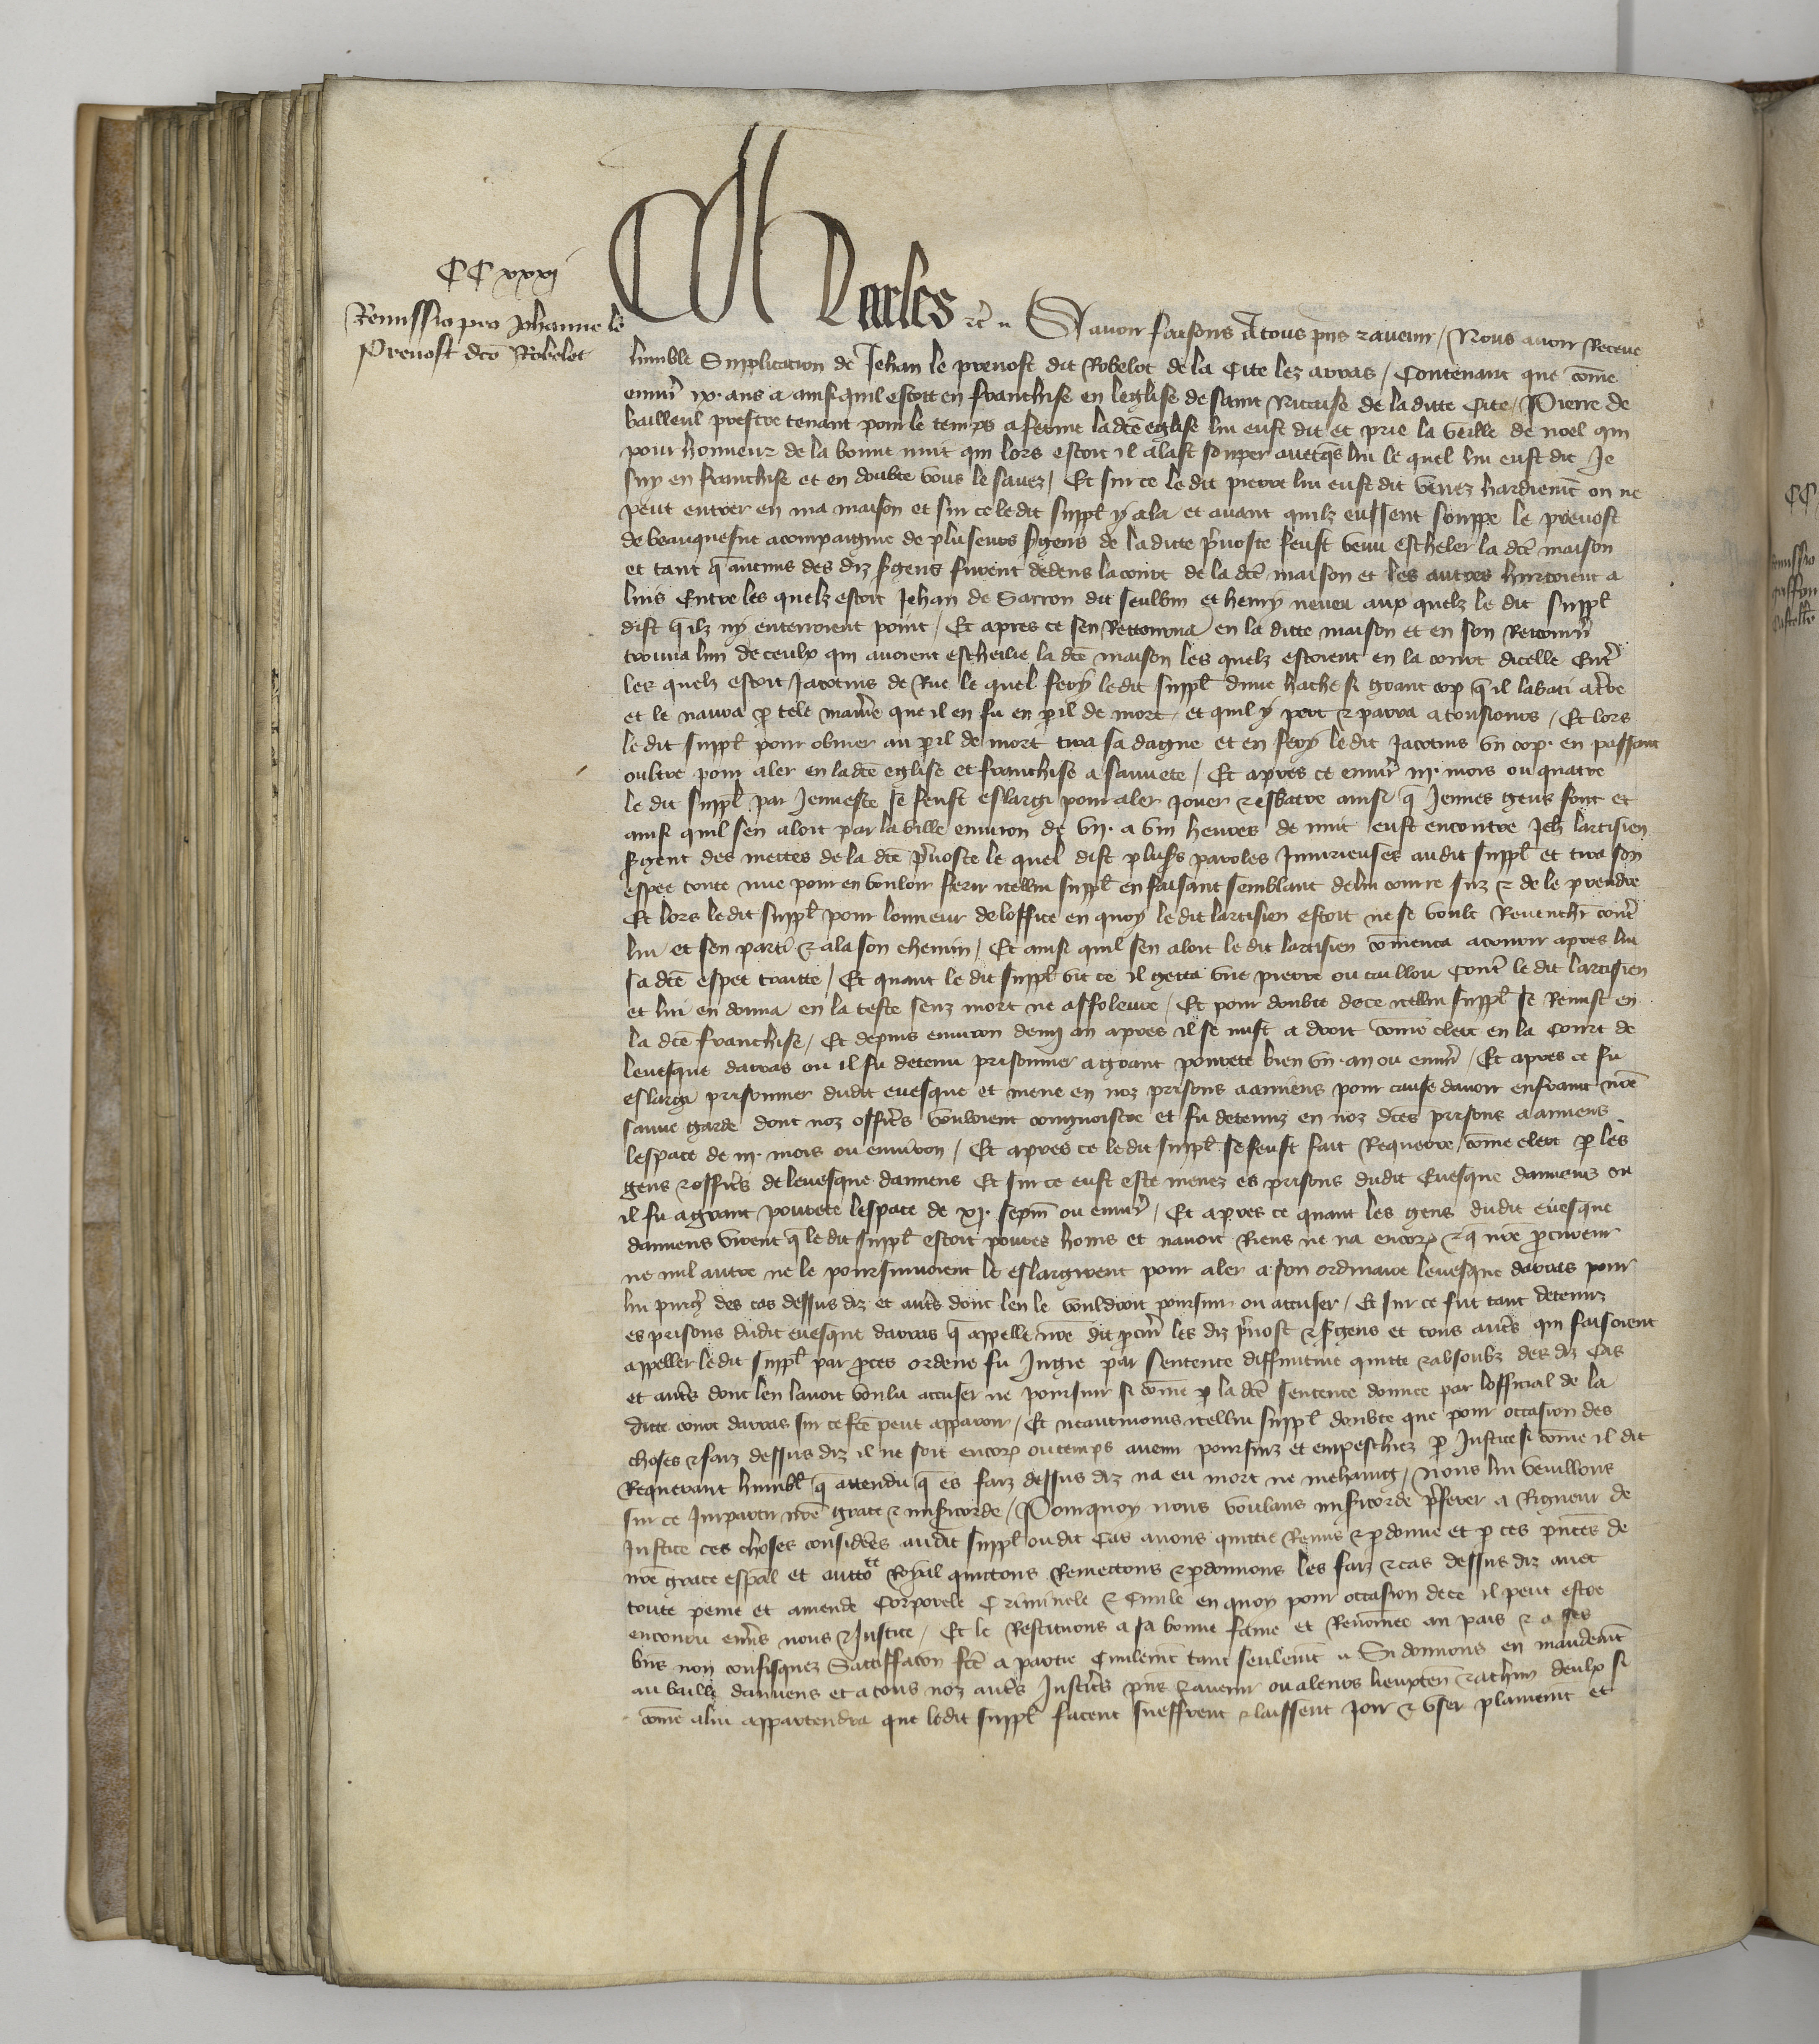 CC xxxj
Remissio pro Johanne le
Prevost dco Robelot
Charles etc. Savoir faisons A tous pns et avenir / Nous avoir Receue
humble Supplicacion de Jehan le prevost dit Robelot de la Cite lez arras / Contenant que come
envir ix. ans a ainsi quil estoit en franchise en leglise de saint Nicaise de la ditte Cite / Pierre de
bailleul prestre tenant pour le temps a ferme la dce eglise lui eust dit et prie la veille de noel qui
pour honneur de la bonne nuit qui lors estoit il alast souper avecqs lui le quel lui eust dit Je
suy en franchise et en doubte vous le savez / Et sur ce le dit pierre lui eust dit venez hardiemt on ne
peut entrer en ma maison et sur ce le dit suppl y ala et avant quilz eussent souppe le prevost
de beauquesne acompaigne de pluseurs sgens de la ditte pvoste feust venu escheler la dce maison
et tant q aucuns des diz sgens furent dedens la court de la dce maison et les autres hurtoient a
luis Entre les quelz estoit Jehan de Sarron dit seullvin et henry neveu aux quelz le dit suppl
dist q ilz ny enterroient point / Et apres ce sen Retourna en la ditte maison et en son Retourn
trouva lun de ceulx qui avoient eschelle la dce maison les quelz estoient en la court dicelle Entr
les quelz estoit Jacotins de Rue le quel fery le dit suppl dune hache si grant cop q il labati a tre
et le navra p tele maniere que il en fu en pil de mort / et quil y pert et parra a tousiours / Et lors
le dit suppl pour obvier au peril de mort tira sa dague et en fery le dit Jacotins un cop. en passant
oultre pour aler en la dce eglise et franchise a sauvete / Et apres ce envir iij. mois ou quatre
le dit suppl par Jeunesse se feust eslargi pour aler jouer et esbatre ainsi q Jeunes gens font et
ainsi quil sen aloit par la ville environ de vij. a viij heures de nuit eust encontre Jeh lartisien
sgent des mettes de la dce pvoste le quel dist plusrs paroles Injurieuses audit suppl et tira son
espee toute nue pour en vouloir ferir icellui suppl en faisant semblant de lui courre suz et de le prendre
Et lors le dit suppl pour lonneur de loffice en quoy le dit lartisien estoit ne se voult Revenchr contr
lui et sen parti et ala son chemin / Et ainsi quil sen aloit le dit lartisien comenca a courir apres lui
sa dce espee traitte / Et quant le dit suppl vit ce il getta une pierre ou caillou contr le dit lartisien
et lui en donna en la teste senz mort ne affoleure / Et pour doubte de ce icellui suppl se Remist en
la dce franchise / Et depuis environ demy an apres il se mist a droit come clerc en la Court de
levesque darras ou il fu detenu prisonnier a grant povrete bien un. an ou envir / Et apres ce fu
eslargi prisonnier dudit evesque et mene en noz prisons a amiens pour cause davoir enfraint nre
sauve garde dont noz officrs vouloient congnoistre et fu detenuz en noz dces prisons a amiens
lespace de iij. mois ou environ / Et apres ce le dit suppl se feust fait Requerre come clerc p les
gens et officrs de levesque damiens Et sur ce eust este menez es prisons dudit Evesque damiens ou
il fu a grant povrete lespace de xj. sepm ou envir / Et apres ce quant les gens dudit evesque
damiens virent q le dit suppl estoit povres homs et navoit Riens ne na encor et q nre pcureur
ne nul autre ne le poursuivoient le eslargirent pour aler a son ordinaire levesque darras pour
lui purgr des cas dessus diz et autrs dont len le vouldroit poursuir ou accuser / Et sur ce fut tant detenuz
es prisons dudit evesque darras q appelle nre dit pcur les diz pvost et sgens et tous autrs qui faisoient
appeller le dit suppl par pces ordene fu Jugie par sentence diffinitive quitte et absoulz des diz Cas
et autrs dont len lavoit voulu accuser ne poursuir si come p la dce sentence donnee par lofficial de la
ditte court darras sur ce fce peut apparoir / Et neantmoins icellui suppl doubte que pour occasion des
choses et faiz dessus diz il ne soit encor ou temps avenir poursuiz et empeschiez p Justice si come il dit
Requerant humbl q attendu q es faiz dessus diz na eu mort ne mehaing / nous lui veuillons
sur ce Impartir nre grace et misicorde / Pourquoy nous voulans misicorde pferer a Rigueur de
Justice ces choses considres audit suppl ou dit Cas avons quittie Remis et pdonne et p ces pntes de
nre grace espal et auctote Royal quittons Remettons et pdonnons les faiz et cas dessus diz avec
toute peine et amende Corporele Criminele et Civile en quoy pour occasion de ce il peut estre
encouru envrs nous et Justice / Et le Restituons a sa bonne fame et Renomee au pais et a ses
bns non confisquez Satiffacon fce a partie Civilemt tant seulemt Si donnons en mandemt
au bailli damiens et a tous noz autrs Justicrs pns et avenir ou a leurs lieuxten et a chun deulx si
come a lui appartendra que le dit suppl facent sueffrent et laissent Joir et user plainemt et